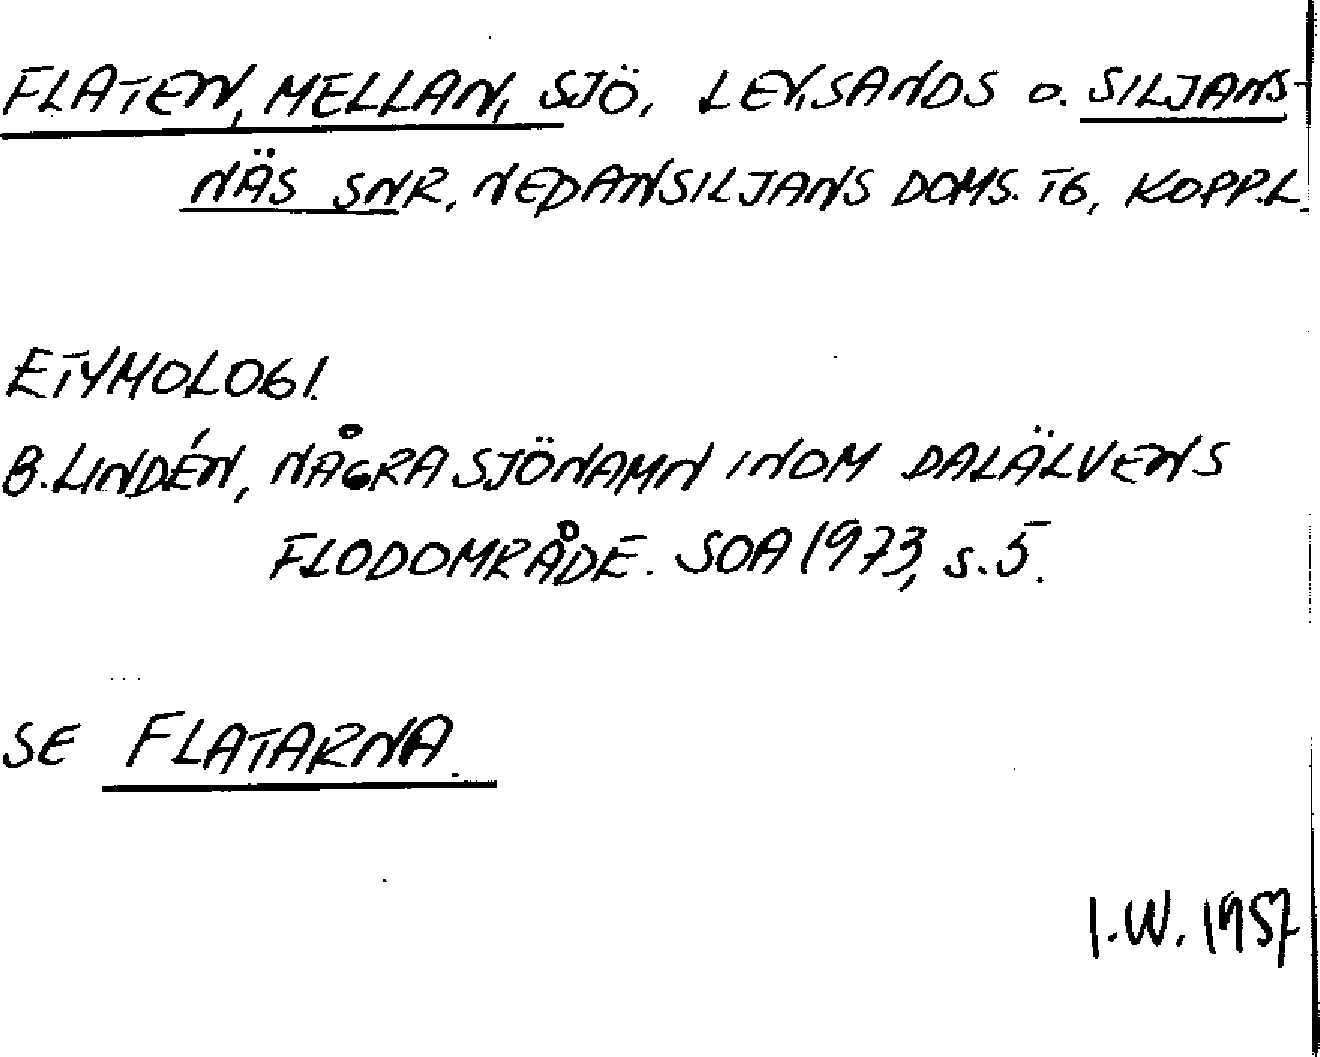 FLATEN, MELLAN, SJÖ, LEKSANDS o. SILJANS-
NÄS SNR, NEDANSILJANS DOMS. TG, KOPP.L.
ETYMOLOGI.
B. LINDÉN, NÅGRA SJÖNAMN INOM DALÄLVENS
FLODOMRÅDE. SOA 1973, s. 5.
SE FLATARNA.
I.W. 1957